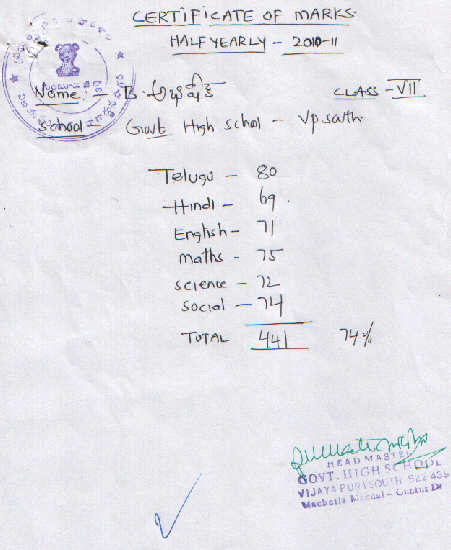 CERTIFICATE OF MARKS
HALF YEARLY - 2010-11
Name - B. అభిషేక్ CLASS - VII
School - Govt High school - Vp south
Telugu - 80
Hindi - 69.
English - 71
maths - 75
science - 72
social - 74
TOTAL 441 74%
HEAD MASTER
GOVT. HIGH SCHOOL
VIJAYA PURI SOUTH 522 439
Macherla Mandal - Guntur Dt